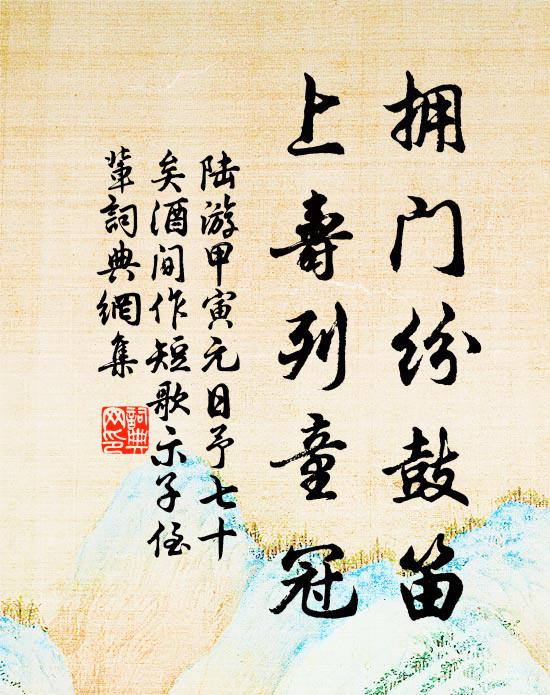 拥门纷鼓笛
上寿列童冠
陆游甲寅元日予七十
矣酒间作短歌示子侄
辈詞典網集
詞典
网印